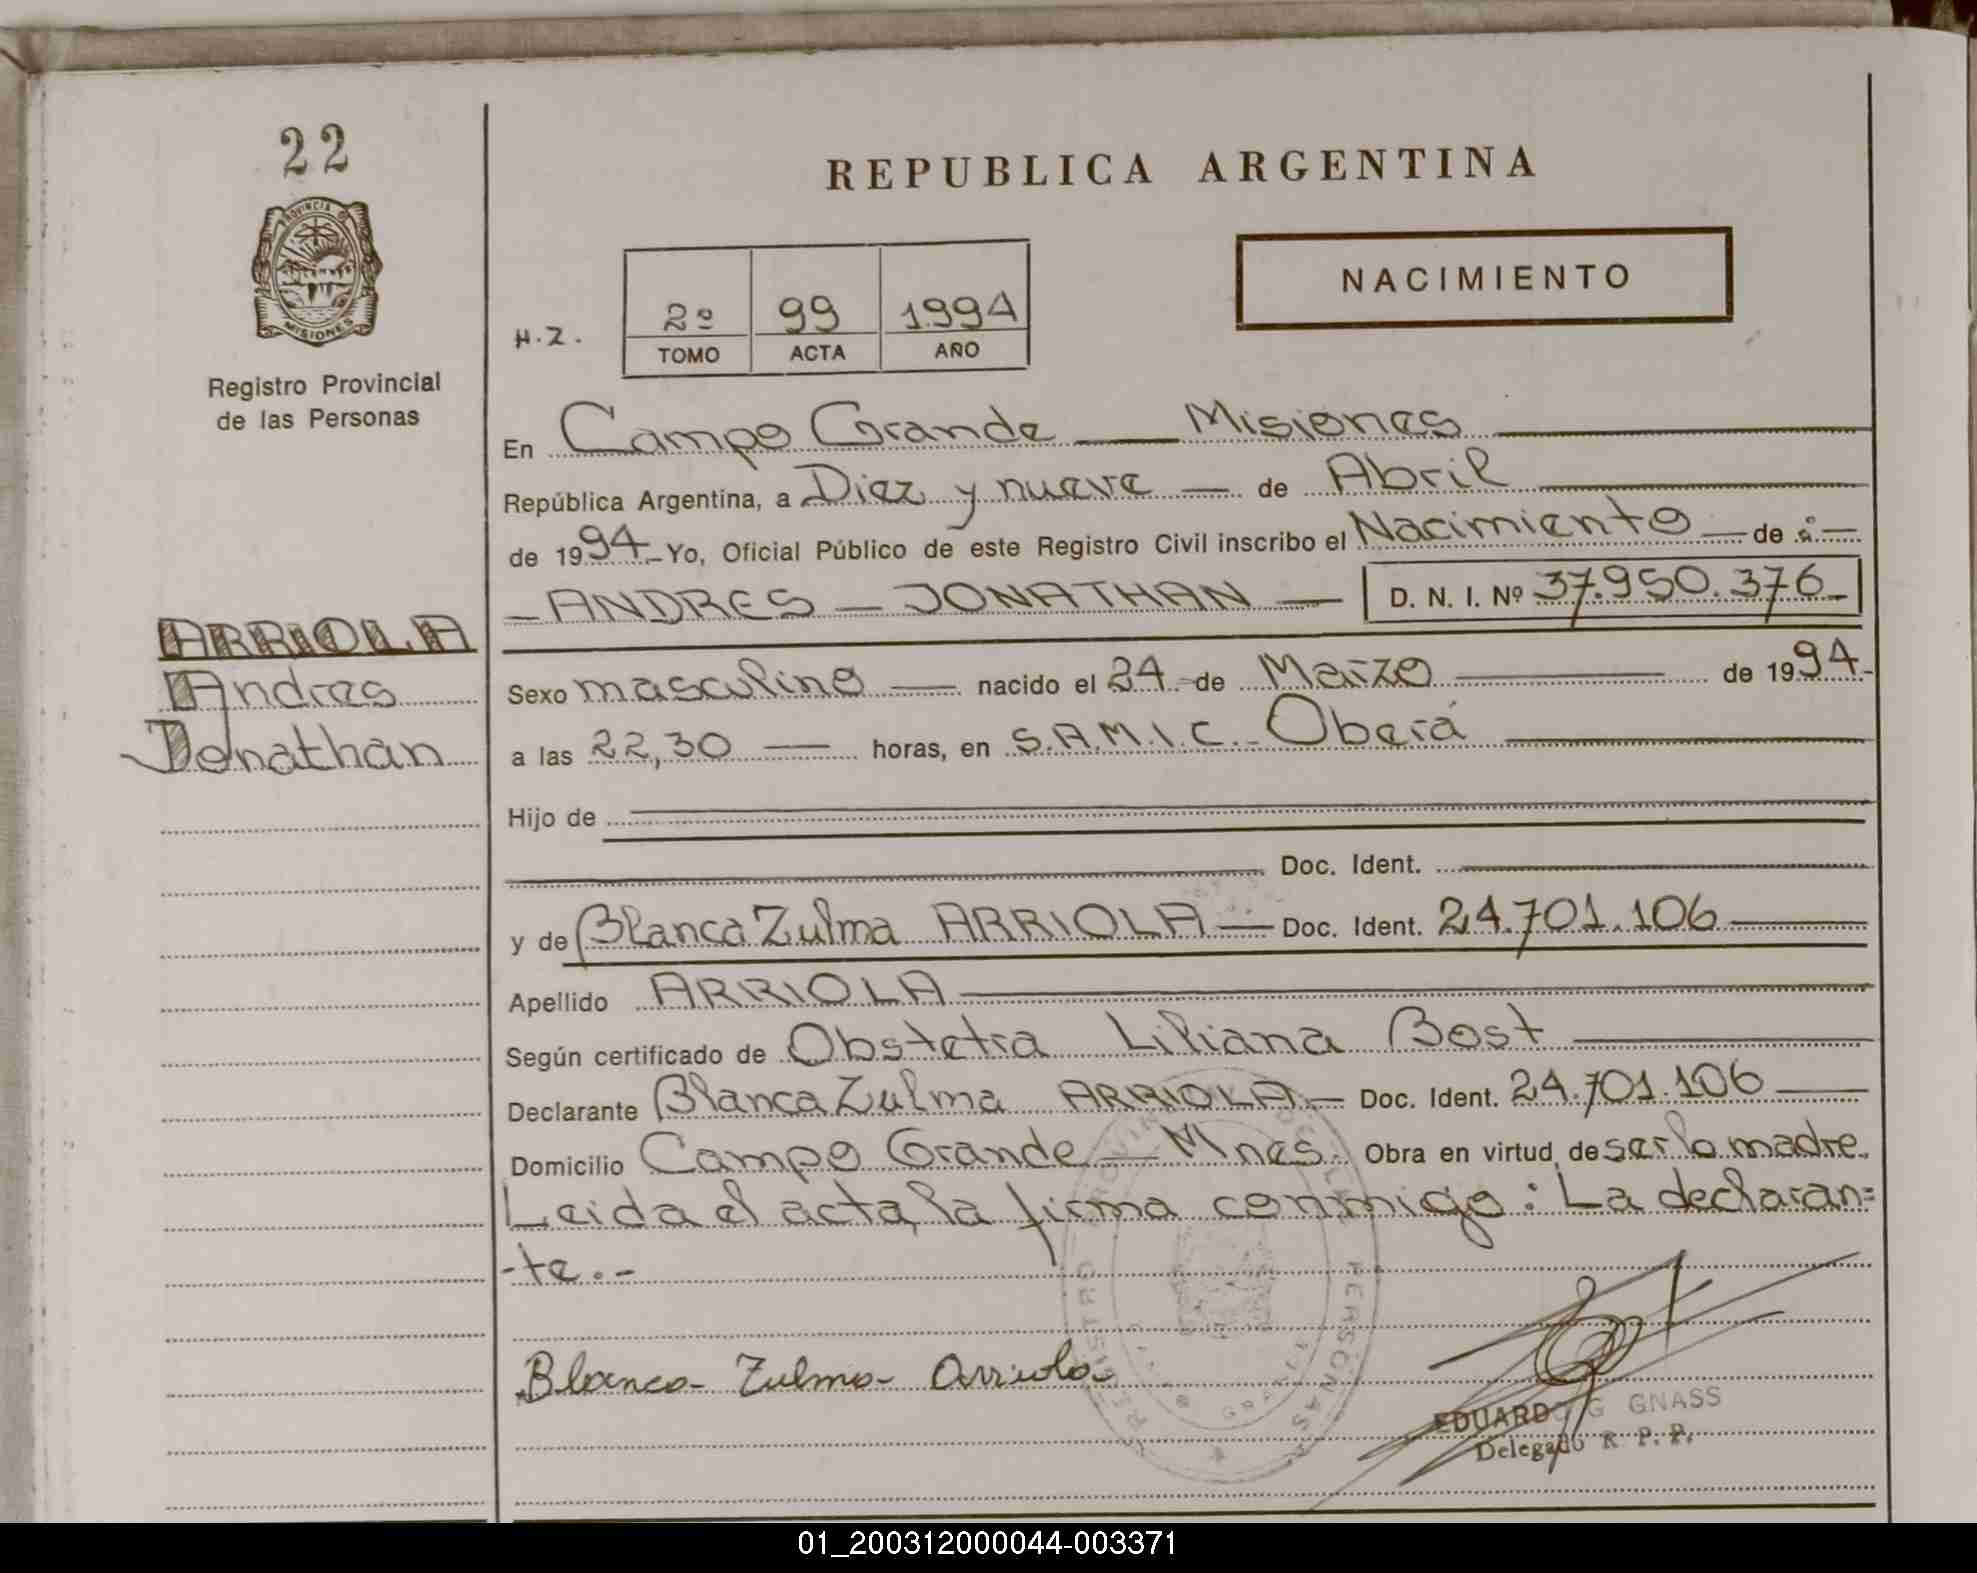 22
PROVINCIA DE
MISIONES
Registro Provincial
de las Personas
ARRIOLA
Andres
Jonathan
REPUBLICA ARGENTINA
NACIMIENTO
H.Z.
2º 99 1.994
TOMO ACTA AÑO
En Campo Grande — Misiones
República Argentina, a Diez y nueve — de Abril
de 1994.- Yo, Oficial Público de este Registro Civil inscribo el Nacimiento — de :—
— ANDRES — JONATHAN — D. N. I. Nº 37.950.376_
Sexo masculino — nacido el 24 de Marzo — de 1994.-
a las 22,30 — horas, en S.A.M.I.C. Oberá
Hijo de
Doc. Ident.
y de Blanca Zulma ARRIOLA — Doc. Ident. 24.701.106
Apellido ARRIOLA
Según certificado de Obstetra Liliana Bost
Declarante Blanca Zulma ARRIOLA — Doc. Ident. 24.701.106
Domicilio Campo Grande — Mnes. Obra en virtud de ser la madre.
Leida el acta, la firma conmigo: La declaran=
-te.-
Blanca Zulma Arriola
EDUARDO G GNASS
Delegado R P. P.
REGISTRO PROVINCIAL DE LAS PERSONAS
01_200312000044-003371